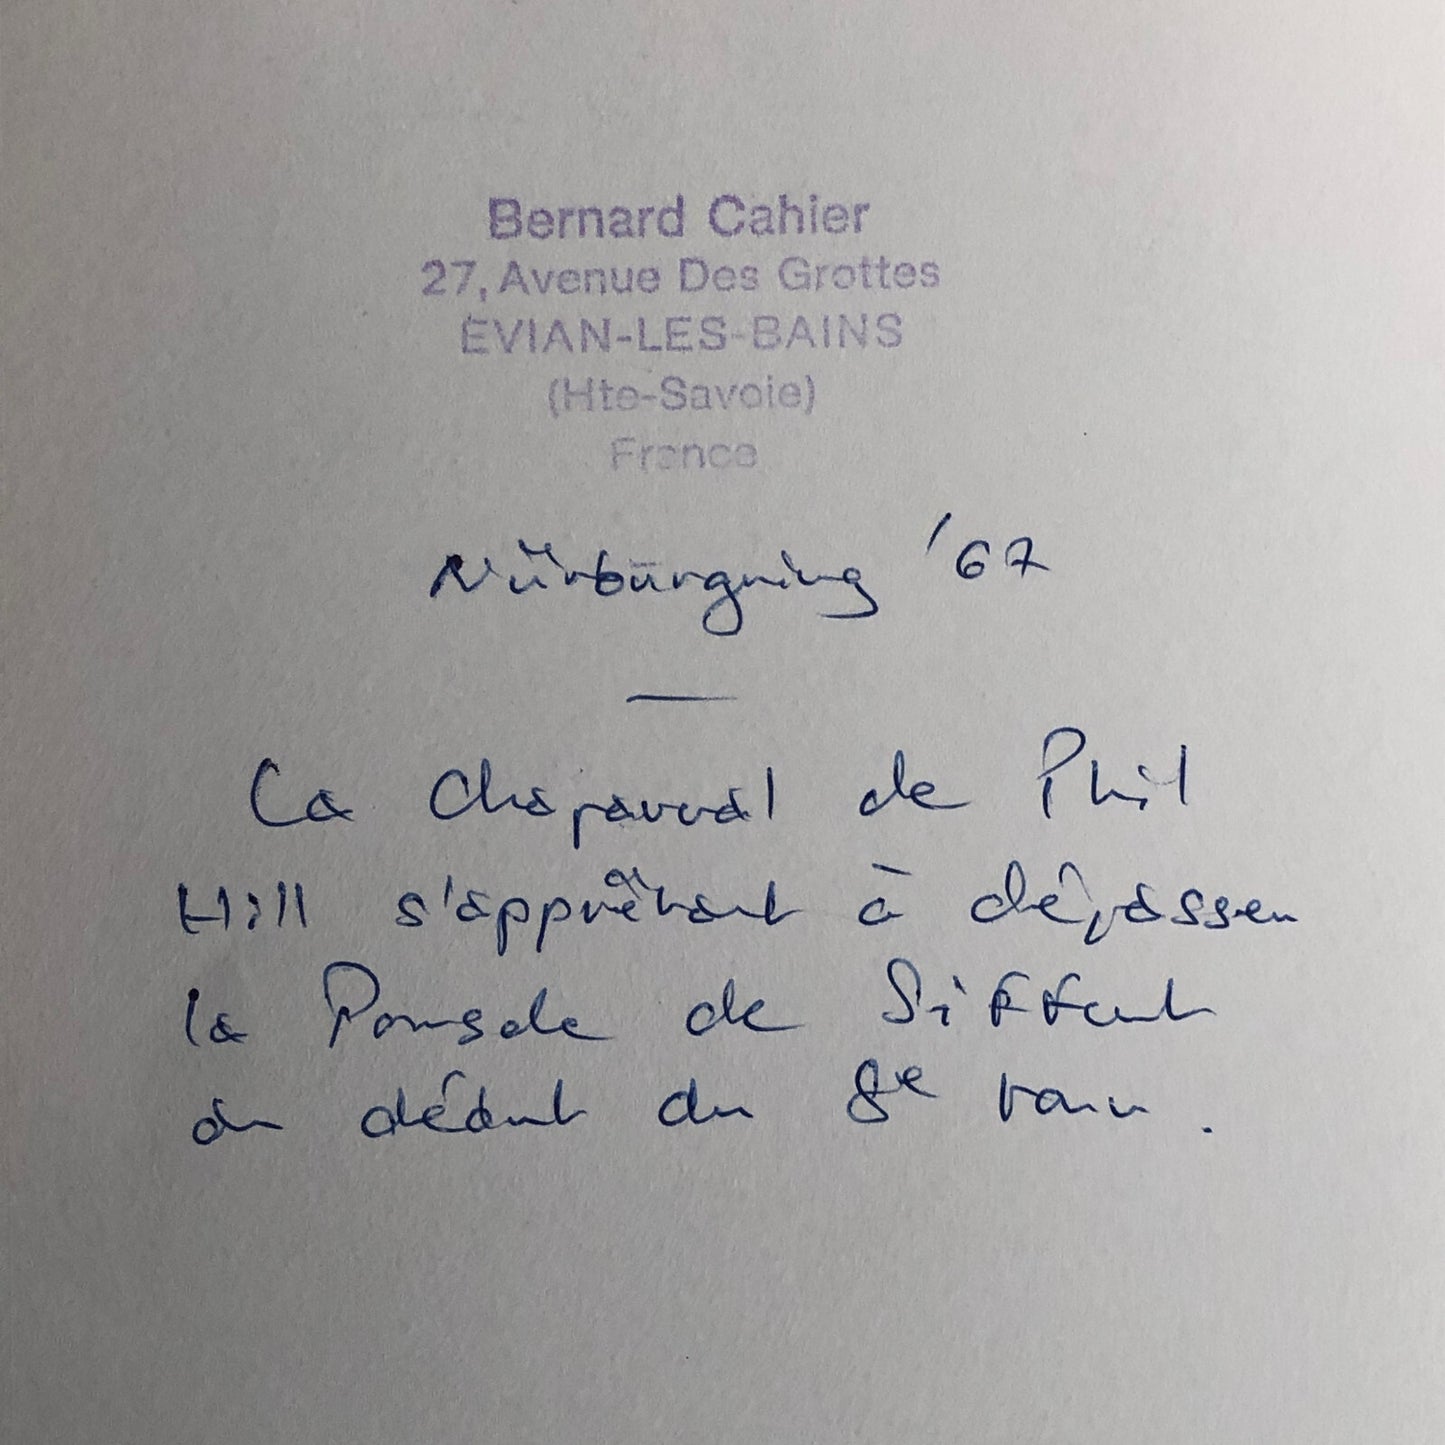 Bernard Cahier
27, Avenue Des Grottes
EVIAN-LES-BAINS
(Hte-Savoie)
France
Nürbürgring '67
—
La Chaparral de Phil
Hill s'apprêtant à dépasser
la Porsche de Siffert
au début du 8e tour.